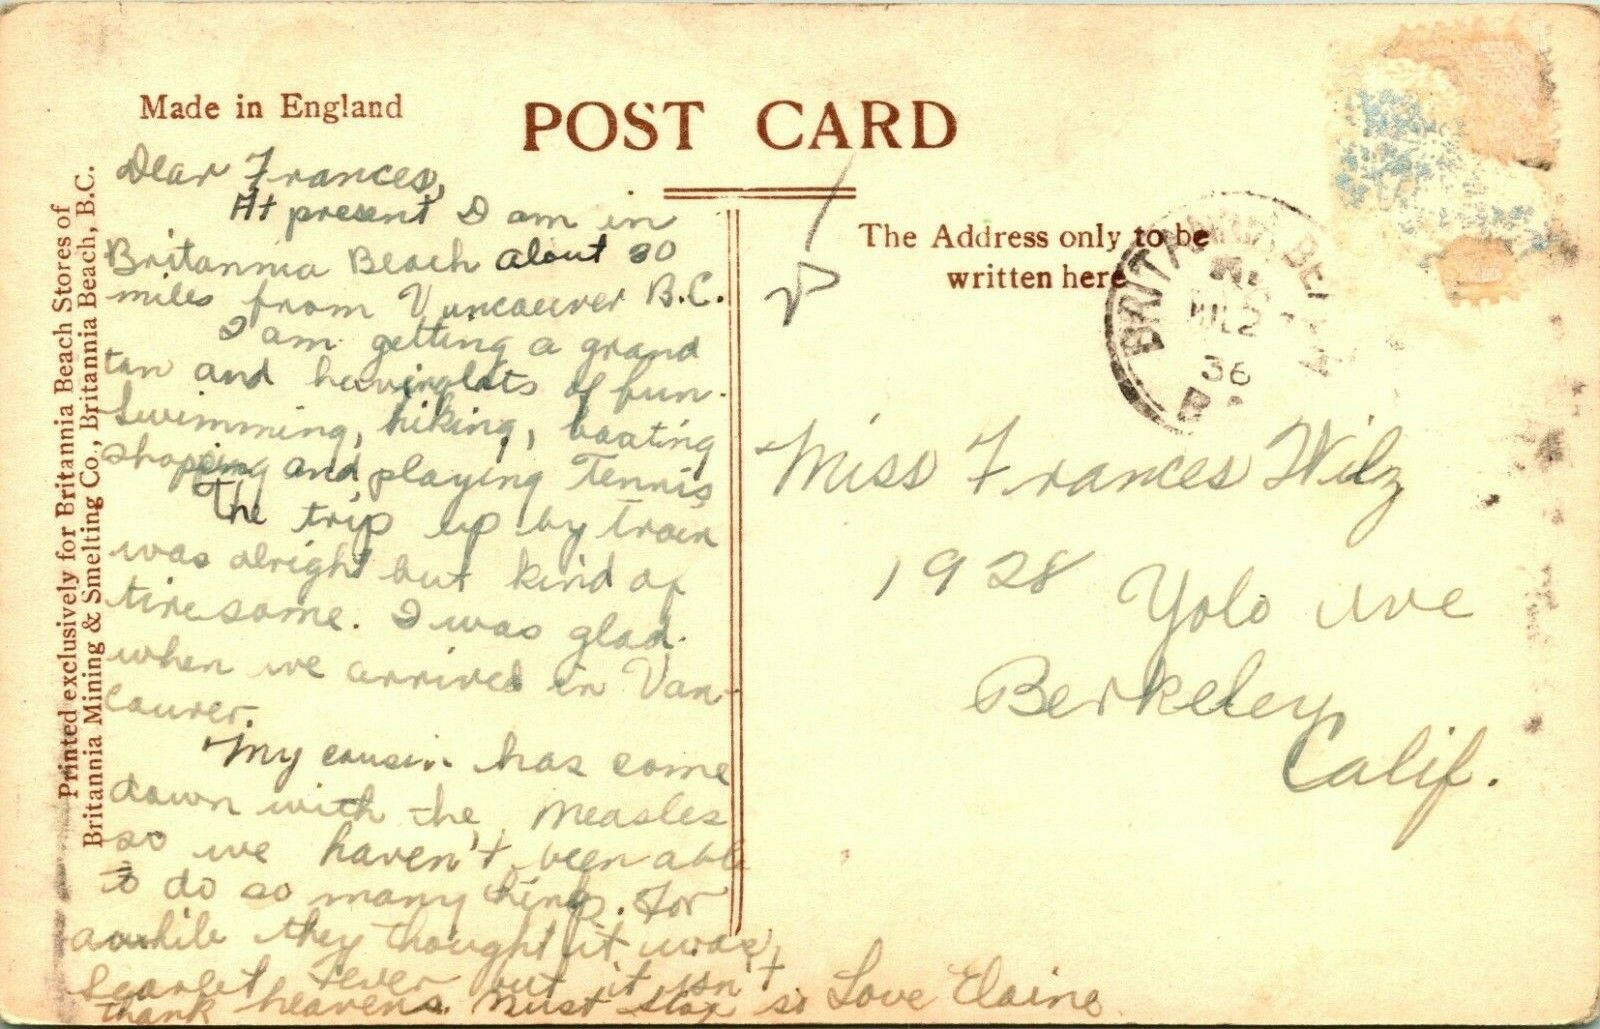 Made in England
POST CARD
Printed exclusively for Britannia Beach Stores of
Britannia Mining & Smelting Co., Britannia Beach, B.C.
The Address only to be
written here
BRITANNIA BEACH
36
Dear Frances,
At present I am in
Britannia Beach about 30
miles from Vancouver B.C.
I am getting a grand
tan and having lots of fun.
Swimming, hiking, boating
shopping and playing Tennis
The trip up by train
was alright but kind of
tiresome. I was glad
when we arrived in Van-
couver.
My cousin has come
down with the measles
so we haven't been able
to do so many things. For
awhile they thought it was
Scarlet fever but it isn't
thank heavens. Must stop so Love Elaine
Miss Frances Wilz
1928 Yolo ave
Berkeley
Calif.